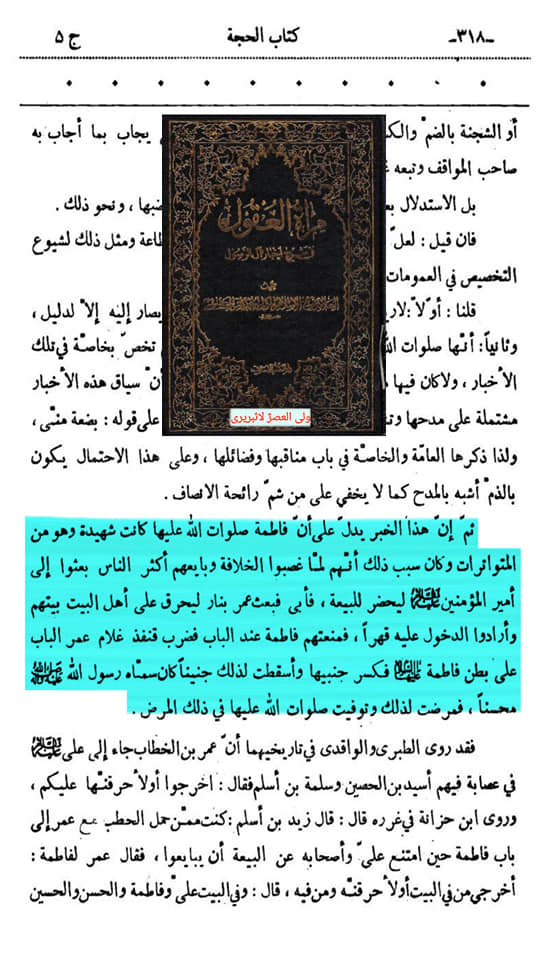 ج ٥ كتاب الحجة -٣١٨-
أو الشجنة بالضم والك يجاب بما أجاب به
صاحب المواقف وتبعه
بل الاستدلال بع ضبها ، ونحو ذلك .
فان قيل : لعل طاعة ومثل ذلك لشيوع
التخصيص في العمومات
قلنا : أولاً : لاري يصار إليه إلا لدليل ،
وثانياً : أنها صلوات الله تخص بخاصة في تلك
الأخبار ، ولا كان فيها ن سياق هذه الأخبار
مشتملة على مدحها وتش على قوله : بضعة مني ،
مرآة العقول
في شرح أخبار آل الرسول
ولی العصر لائبریری
ولذا ذكرها العامة والخاصة في باب مناقبها وفضائلها ، وعلى هذا الاحتمال يكون
بالذم أشبه بالمدح كما لا يخفي على من شم رائحة الانصاف .
ثم إن هذا الخبر يدل على أن فاطمة صلوات الله عليها كانت شهيدة وهو من
المتواترات وكان سبب ذلك أنهم لما غصبوا الخلافة وبايعهم أكثر الناس بعثوا إلى
أمير المؤمنين عليه السلام ليحضر للبيعة ، فأبى فبعث عمر بنار ليحرق على أهل البيت بيتهم
وأرادوا الدخول عليه قهراً ، فمنعتهم فاطمة عند الباب فضرب قنفذ غلام عمر الباب
على بطن فاطمة عليها السلام فكسر جنبيها وأسقطت لذلك جنيناً كان سماه رسول الله صلى الله عليه وآله
محسناً ، فمرضت لذلك وتوفيت صلوات الله عليها في ذلك المرض .
فقد روى الطبري والواقدي في تاريخيهما أن عمر بن الخطاب جاء إلى علي عليه السلام
في عصابة فيهم أسيد بن الحصين وسلمة بن أسلم فقال : اخرجوا أولأحرقنها عليكم ،
وروى ابن حزانة في غرره قال : قال زيد بن أسلم : كنت ممن حمل الحطب مع عمر إلى
باب فاطمة حين امتنع علي وأصحابه عن البيعة أن يبايعوا ، فقال عمر لفاطمة :
أخرجي من في البيت أولأحرقنه ومن فيه ، قال : وفي البيت علي وفاطمة والحسن والحسين